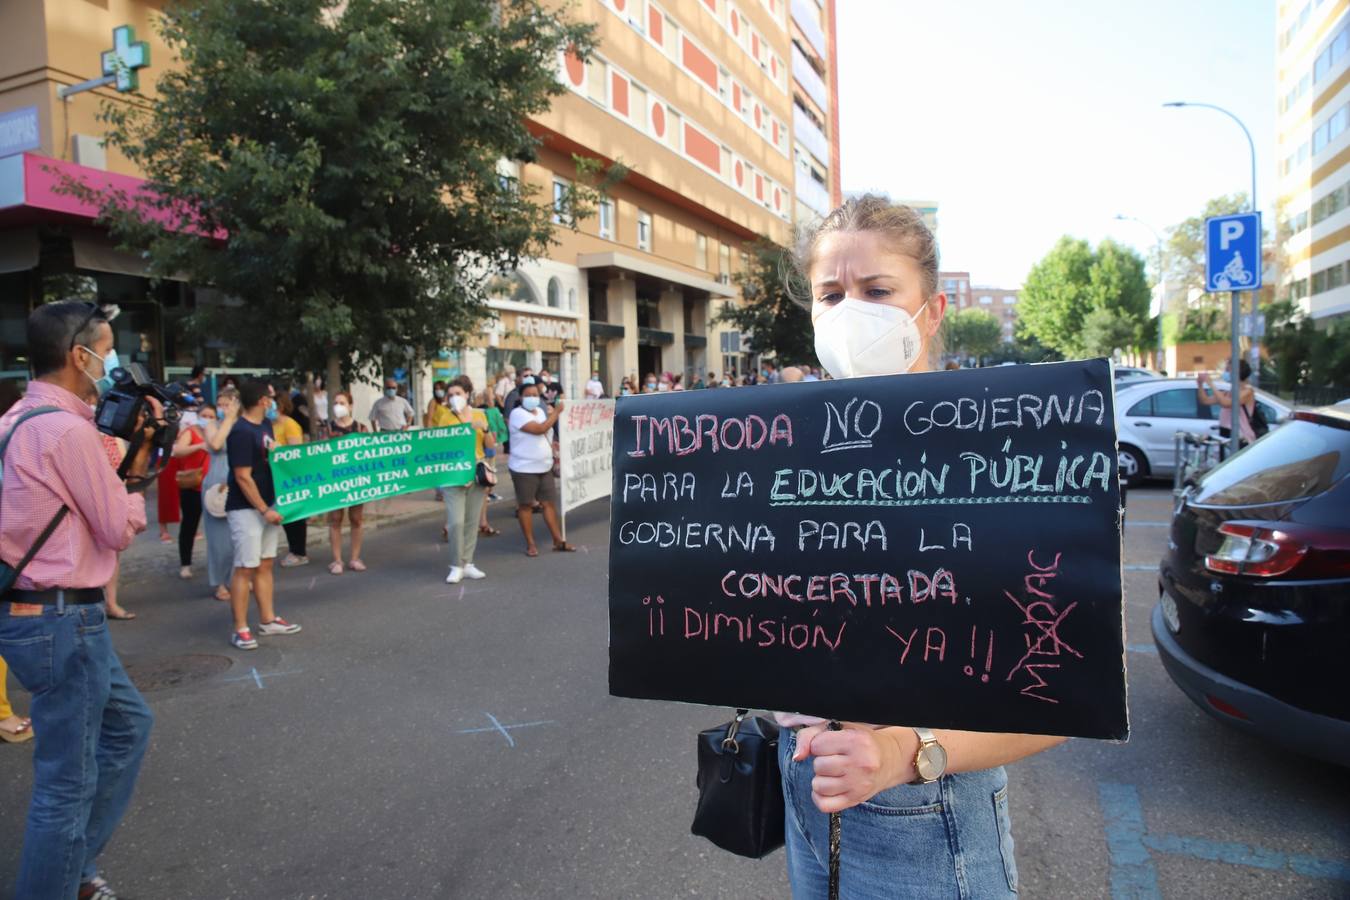 IMBRODA NO GOBIERNA
PARA LA EDUCACIÓN PÚBLICA
GOBIERNA PARA LA
CONCERTADA.
¡¡ DIMISIÓN YA !!
POR UNA EDUCACIÓN PÚBLICA
DE CALIDAD
A.M.P.A. ROSALÍA DE CASTRO
C.E.I.P. JOAQUÍN TENA ARTIGAS
-ALCOLEA-
FARMACIA
P